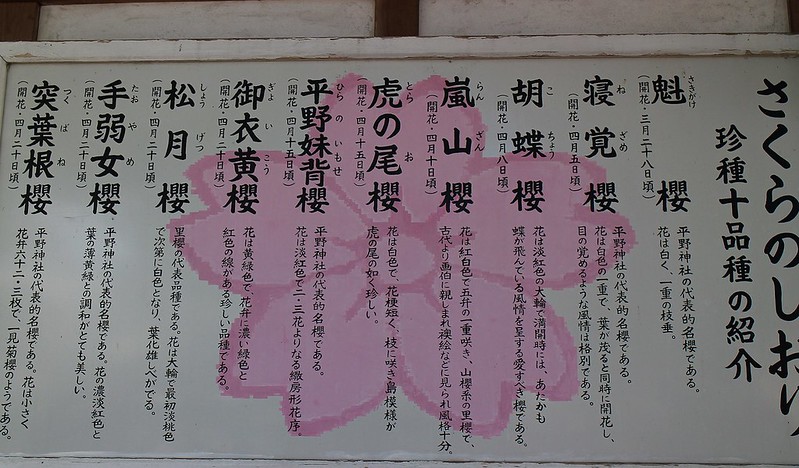 さくらのしおり
珍種十品種の紹介
魁 櫻
さきがけ
(開花・三月二十八日頃)
平野神社の代表的名櫻である。
花は白く、一重の枝垂。
寝覚 櫻
ねざめ
(開花・四月五日頃)
平野神社の代表的名櫻である。
花は白色の一重で、葉が茂ると同時に開花し、
目の覚めるような風情は格別である。
胡蝶 櫻
こちょう
(開花・四月八日頃)
花は淡紅色の大輪で満開時には、あたかも
蝶が飛んでいる風情を呈する愛すべき櫻である。
嵐山 櫻
らんざん
(開花・四月十日頃)
花は紅白色で五弁の一重咲き、山櫻系の里櫻で、
古代より画伯に親しまれ襖絵などに見られ風格十分。
虎の尾 櫻
とらお
(開花・四月十五日頃)
花は白色で、花梗短く、枝に咲き島模様が
虎の尾の如く珍しい。
平野妹背櫻
ひらのいもせ
(開花・四月十五日頃)
平野神社の代表的名櫻である。
花は淡紅色で二・三花よりなる繖房形花序。
御衣黄櫻
ぎょいこう
(開花・四月二十日頃)
花は黄緑色で、花弁に濃い緑色と
紅色の線がある珍しい品種である。
松月 櫻
しょうげつ
(開花・四月二十日頃)
里櫻の代表品種である。花は大輪で最初淡桃色
で次第に白色となり、葉化雄しべがでる。
手弱女櫻
たおやめ
(開花・四月二十日頃)
平野神社の代表的名櫻である。花の濃淡紅色と
葉の薄黄緑との調和がとても美しい。
突葉根櫻
つくばね
(開花・四月二十日頃)
平野神社の代表的名櫻である。花は小さく
花弁六十二・三枚で、一見菊櫻のようである。